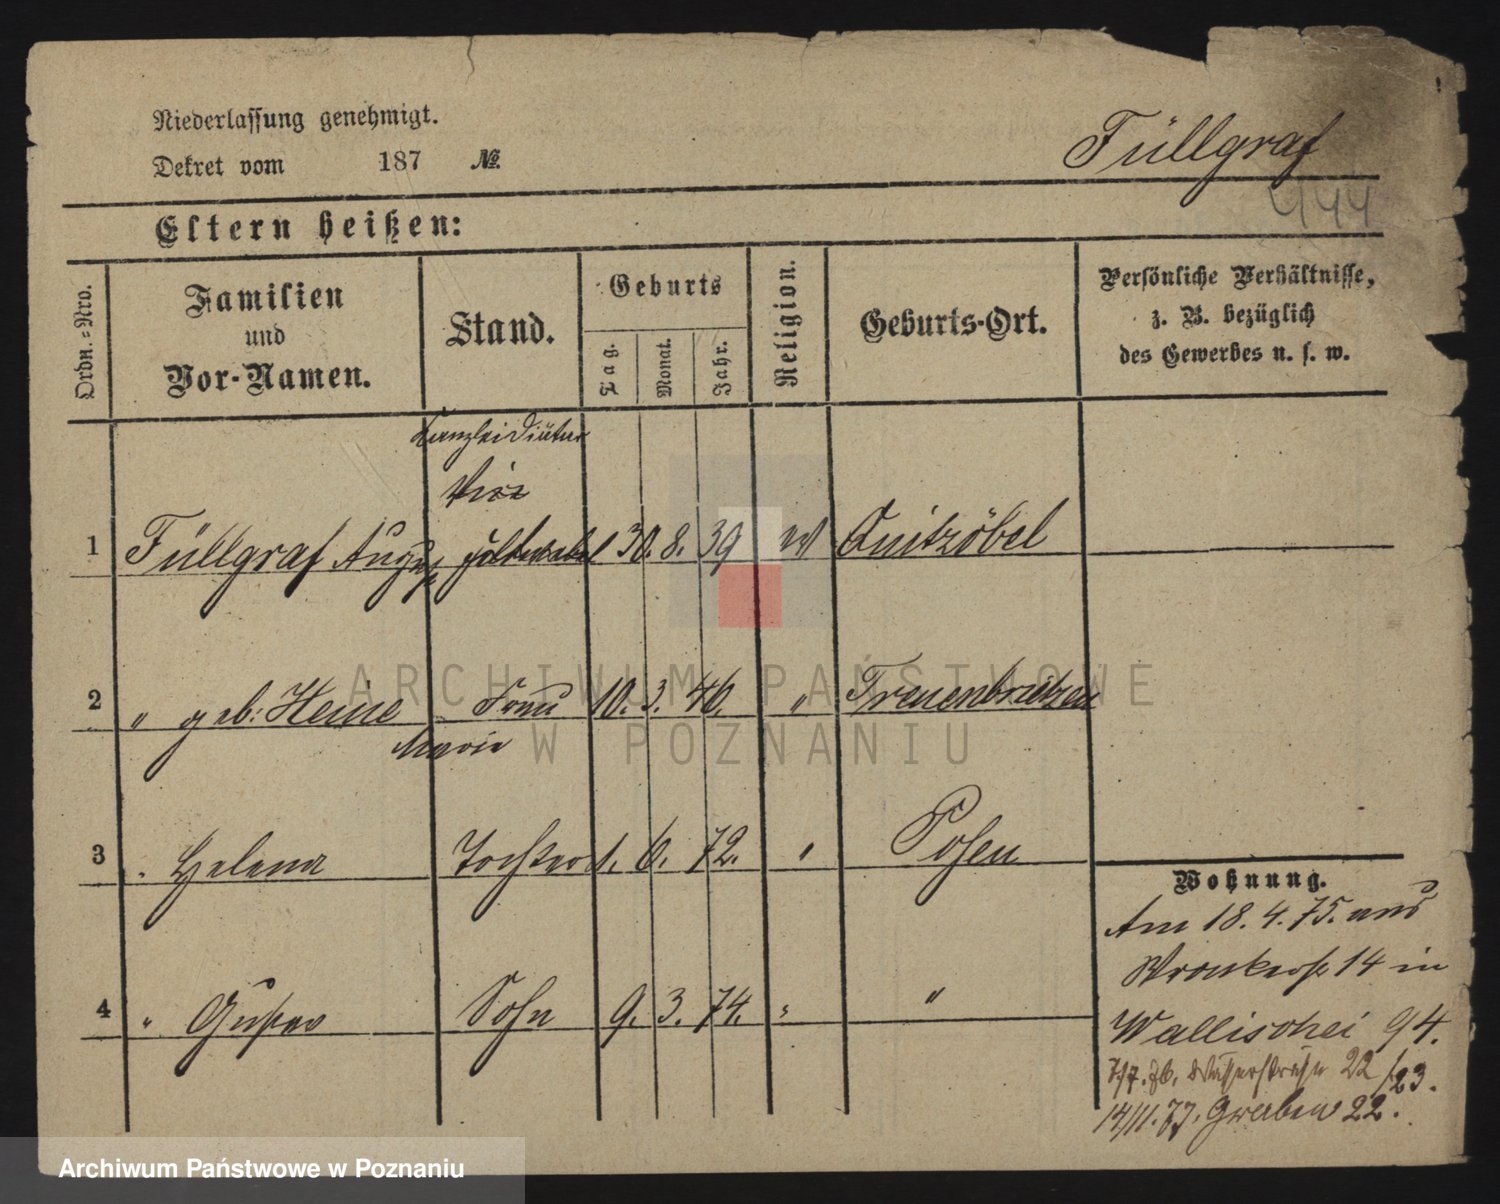 Niederlassung genehmigt.
Dekret vom 187 №.
Füllgraf
444
Eltern heißen:
Ordn.-Nro.
Familien
und
Vor-Namen.
Stand.
Geburts
Tag.
Monat.
Jahr.
Religion.
Geburts-Ort.
Persönliche Verhältnisse,
z. B. bezüglich
des Gewerbes u. s. w.
Kanzleidiätar
Vice
1 Füllgraf August feldwebel 30. 8. 39 ev Quitzöbel
2 " geb: Heine Frau 10. 3. 46. " Treuenbrietzen
Marie
3 " Helena Tochter 1. 6. 72. " Posen
4 " Gustav Sohn 9. 3. 74. " "
Wohnung.
Am 18. 4. 75. aus
Wronkerstr 14 in
Wallischei 94.
7/7. 76. Wasserstraße 22/23.
14/11. 77. Graben 22.
ARCHIWUM PAŃSTWOWE
W POZNANIU
Archiwum Państwowe w Poznaniu